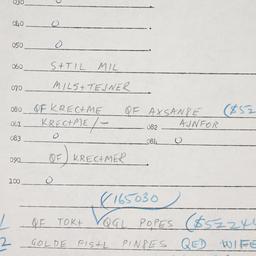 030
040 0
050 0
060 S+TIL MIL
070 MILS+TEJNER
080 QF KRECTME QF AXSANPE ($52
081 KRECTME/- 082 AJNFOR
083 0 084 0
090 QF) KRECTMER
100 0
(/165030)
1 QF TOK+ VQGL POPES ($5224
2 GOLDE FIS+L PINPES QED WIFE